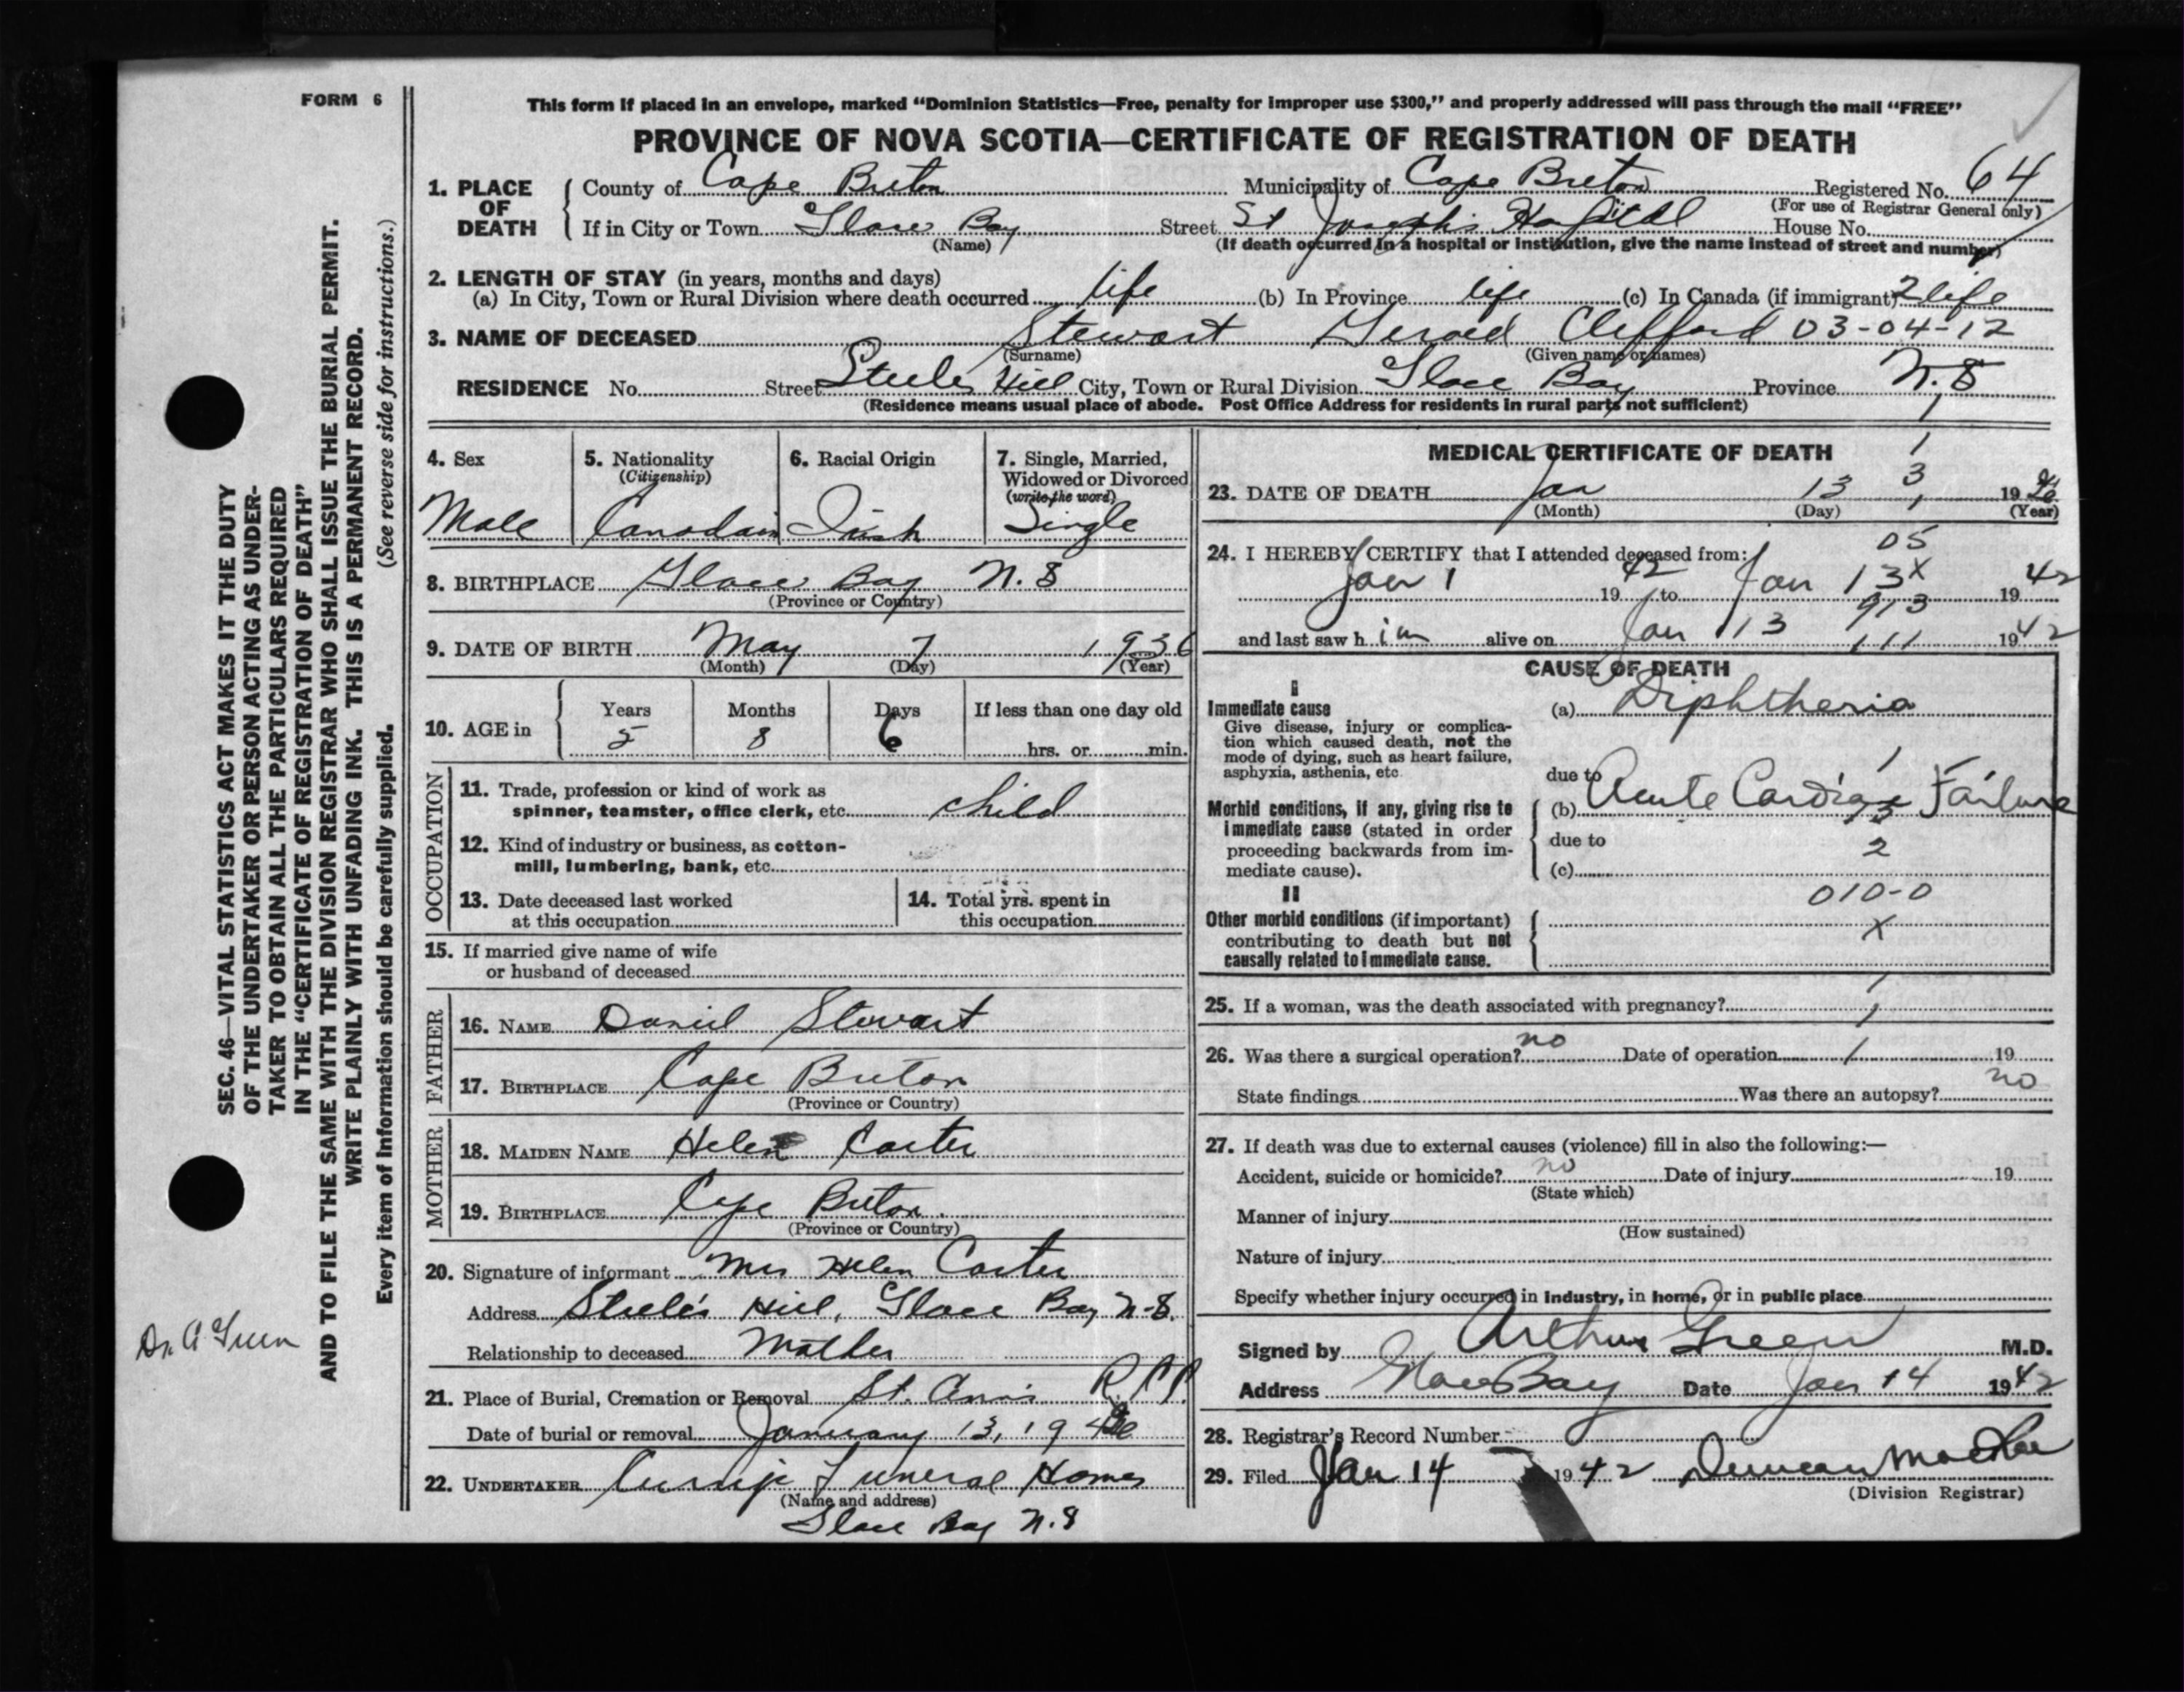 FORM 6
This form if placed in an envelope, marked "Dominion Statistics—Free, penalty for improper use $300," and properly addressed will pass through the mail "FREE"
PROVINCE OF NOVA SCOTIA—CERTIFICATE OF REGISTRATION OF DEATH
1. PLACE OF DEATH County of Cape Breton Municipality of Cape Breton Registered No. 64
(For use of Registrar General only)
If in City or Town Glace Bay Street St Joseph's Hospital House No.
(Name) (If death occurred in a hospital or institution, give the name instead of street and number)
2. LENGTH OF STAY (in years, months and days)
(a) In City, Town or Rural Division where death occurred life (b) In Province life (c) In Canada (if immigrant) 2 life
3. NAME OF DECEASED Stewart Gerald Clifford 03-04-12
(Surname) (Given name or names)
RESIDENCE No. Street Steeles Hill City, Town or Rural Division Glace Bay Province N.S
(Residence means usual place of abode. Post Office Address for residents in rural parts not sufficient) 1
4. Sex Male
5. Nationality (Citizenship) Canadain
6. Racial Origin Irish
7. Single, Married, Widowed or Divorced (write the word) Single
8. BIRTHPLACE Glace Bay N.S
(Province or Country)
9. DATE OF BIRTH May 7 1936
(Month) (Day) (Year)
10. AGE in Years 5 Months 8 Days 6 If less than one day old hrs. or min.
OCCUPATION
11. Trade, profession or kind of work as
spinner, teamster, office clerk, etc. child
12. Kind of industry or business, as cotton-
mill, lumbering, bank, etc.
13. Date deceased last worked
at this occupation
14. Total yrs. spent in
this occupation
15. If married give name of wife
or husband of deceased
FATHER
16. NAME Daniel Stewart
17. BIRTHPLACE Cape Breton
(Province or Country)
MOTHER
18. MAIDEN NAME Helen Carter
19. BIRTHPLACE Cape Breton.
(Province or Country)
20. Signature of informant Mrs Helen Carter
Address Steele's Hill, Glace Bay N-S.
Relationship to deceased Mother
21. Place of Burial, Cremation or Removal St. Ann's
Date of burial or removal January 13, 19
22. UNDERTAKER Currie Funeral Homes
(Name and address)
Glace Bay N.S
MEDICAL CERTIFICATE OF DEATH 1
3
23. DATE OF DEATH Jan 13 1 19
(Month) (Day) (Year)
05
24. I HEREBY CERTIFY that I attended deceased from:
Jan 1 19 42 to Jan 13 x 19 42
913
and last saw h im alive on Jan 13 111 19 42
CAUSE OF DEATH
I
Immediate cause
Give disease, injury or complica-
tion which caused death, not the
mode of dying, such as heart failure,
asphyxia, asthenia, etc.
(a) Diphtheria
1
due to
Morbid conditions, if any, giving rise to
immediate cause (stated in order
proceeding backwards from im-
mediate cause).
(b) Acute Cardiac Failure
13
due to 2
(c)
II 010-0
Other morbid conditions (if important)
contributing to death but not
causally related to immediate cause.
x
1
25. If a woman, was the death associated with pregnancy? 1
26. Was there a surgical operation? no Date of operation 1 19
State findings Was there an autopsy? no
27. If death was due to external causes (violence) fill in also the following:—
Accident, suicide or homicide? no Date of injury 19
(State which)
Manner of injury
(How sustained)
Nature of injury
Specify whether injury occurred in industry, in home, or in public place
Signed by Arthur Green M.D.
Address Glace Bay Date Jan 14 1942
28. Registrar's Record Number
29. Filed Jan 14 1942 Duncan
(Division Registrar)
SEC. 46—VITAL STATISTICS ACT MAKES IT THE DUTY
OF THE UNDERTAKER OR PERSON ACTING AS UNDER-
TAKER TO OBTAIN ALL THE PARTICULARS REQUIRED
IN THE "CERTIFICATE OF REGISTRATION OF DEATH"
AND TO FILE THE SAME WITH THE DIVISION REGISTRAR WHO SHALL ISSUE THE BURIAL PERMIT.
WRITE PLAINLY WITH UNFADING INK. THIS IS A PERMANENT RECORD.
Every item of information should be carefully supplied. (See reverse side for instructions.)
Dr. A Green